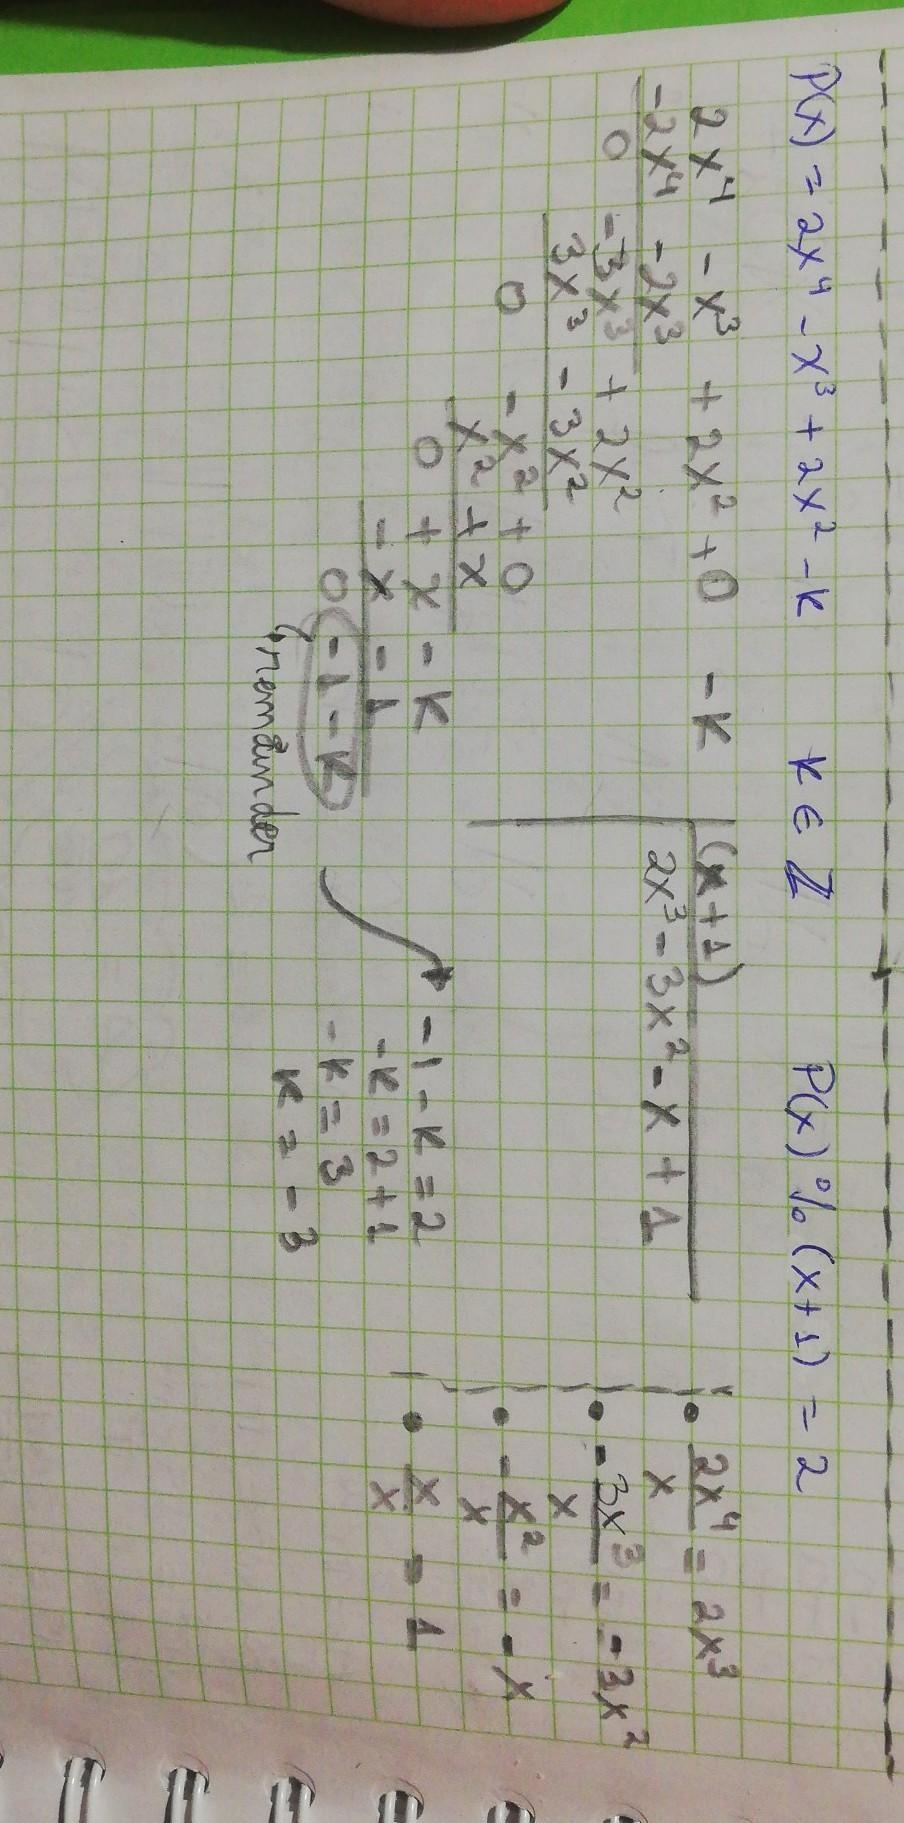 P(x) = 2x⁴ - x³ + 2x² - k k ∈ ℤ P(x) % (x+1) = 2
2x⁴ - x³ + 2x² + 0 - k (x+1)
-2x⁴ - 2x³ 2x³ - 3x² - x + 1
0 -3x³ + 2x²
3x³ - 3x²
0 - x² + 0
x² + x
0 + x - k
- x - 1
0 -1 - k
remainder
-1 - k = 2
-k = 2 + 1
-k = 3
k = -3
• 2x⁴/x = 2x³
• -3x³/x = -3x²
• -x²/x = -x
• x/x = 1